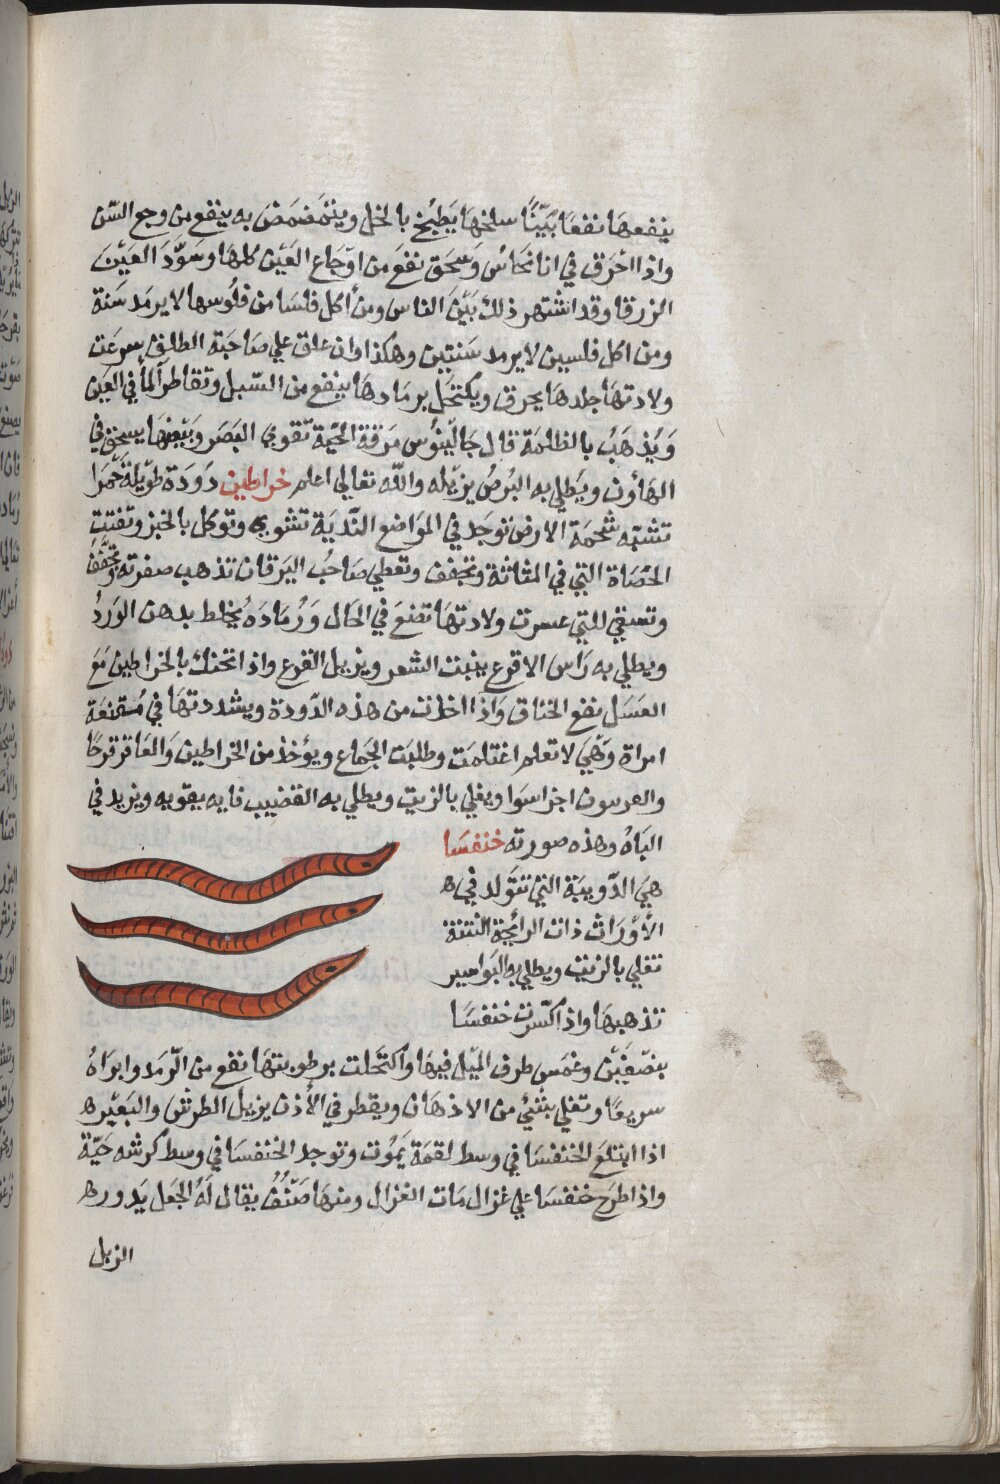 ينفعها نفعًا بَيّنًا سلخها يَطبُخ بالخل ويتمَضمَضَ به ينفع من وجع السّن
واذا احرق في انا نحَاس وَسَحق نفع من اوجَاع العَين كلهَا وسَوّدَ العَين
الزرقا وقد اشتهر ذلك بَيْنَ الناس ومن أكل فلسًا من فلُوسها لا يرمَد سَنة
ومن اكل فلسين لا يرمد سَنتين وهكذا وان علق علي صَاحبَة الطلق سرعَت
ولادتهَا جلدهَا يحرق ويكتحَل برمَادهَا ينفع من السّبل وتقاطر المأ في العَين
وَيُذهَبُ بالظلمَة قال جَاليْنوُس مَرَقة الحَيّة تقوي البَصَر وَبَيْضهَا يسحق في
الهَاوُن ويَطلي به البُرصُ يزيْله والله تعالي اعلم خراطين دَودَة طوّيلة حَمرَا
تشبه شحمَة الارض توجَد في المَوَاضع النّديَة تشوي وتوكل بالخبز وتفتت
الحصَاة التي في المثانة وتجفف وتعطي صَاحبُ اليَرقان تذهب صفرته وتجَفَّفَ
وتسقي للتي عسرت ولادتهَا تضعَ في الحَال وَرُمَادَهُ يُخلط بدهن الوَردُ
ويطلي به رَاس الاقرع ينبت الشعر ويزيل القرع واذا تحنك بالخراطين مَعَ
العَسَل نفع الخناق وَاذا اخذت من هَذه الدّودة ويشددتهَا في مُقنعَة
امراة وَهَيَ لا تعلم اغتلمَت وطلبَت الجَماع ويؤخذ من الخراطين وَالعَاقرقرحًا
والعرسون اجزا سَوَا ويغلي بالزيت ويطلي به القضيب فايه يقويه ويزيد في
البَاهُ وهَذه صورته خنفسَا
هيَ الدّوَيبَة التي تتَولد في ه
الأوْرَاث ذات الرائحة النتنة
تغلي بالزيت ويطلي به البَواسير
تذهبهَا واذا كسّرت خنفسَا
بنصّفَيْن وغمَس طرف الميْل فيهَا واكتحَلت برطوبتهَا نفع من الرّمَد وابراهُ
سريعًا وتغلي بشئ من الادهَان ويقطر في الأذن يزيل الطرش والبَعيْره
اذا ابتلعَ الخنفسَا في وسط لقمَة يَمُوت وتوجد الخنفسَا في وسط كرشه حَيّة
واذا طرَح خنفسَا علي غزال مَات الغزال ومنهَا صَنْفُ يقال لهُ الجعَل يَدوره
الزبل